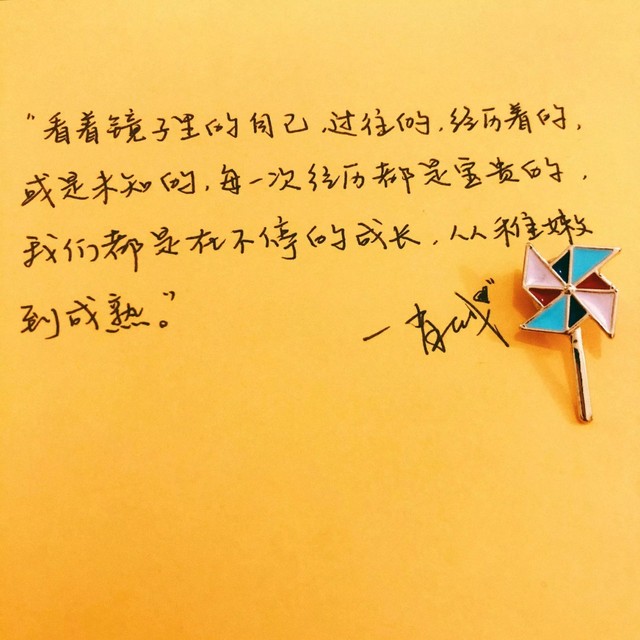 “看着镜子里的自己，过往的，经历着的，
或是未知的，每一次经历都是宝贵的，
我们都是在不停的成长，从稚嫩
到成熟。”